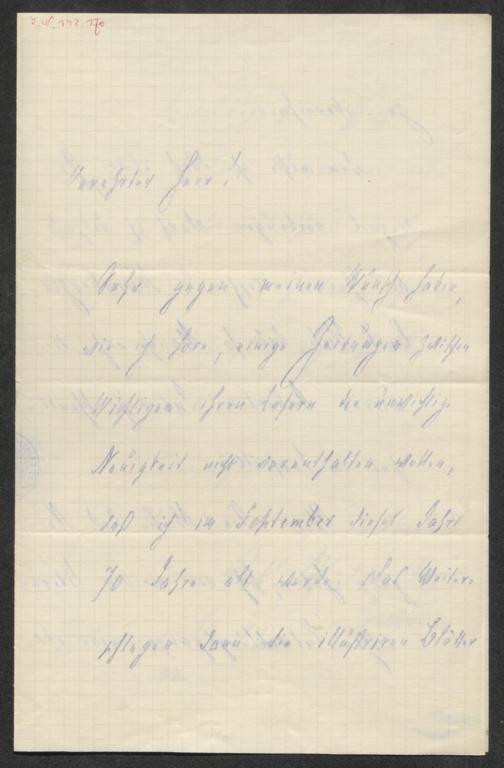 I. N. 142.170
Verehrter Herr!
Sehr gegen meinen Wunsch haben,
wie ich höre, einige Zeitungen zwischen
Wichtigem ihren Lesern die unwichtige
Neuigkeit nicht vorenthalten wollen,
daß ich im September dieses Jahrs
70 Jahre alt werde. Das Weitere
pflegen dann die illustriren Blätter